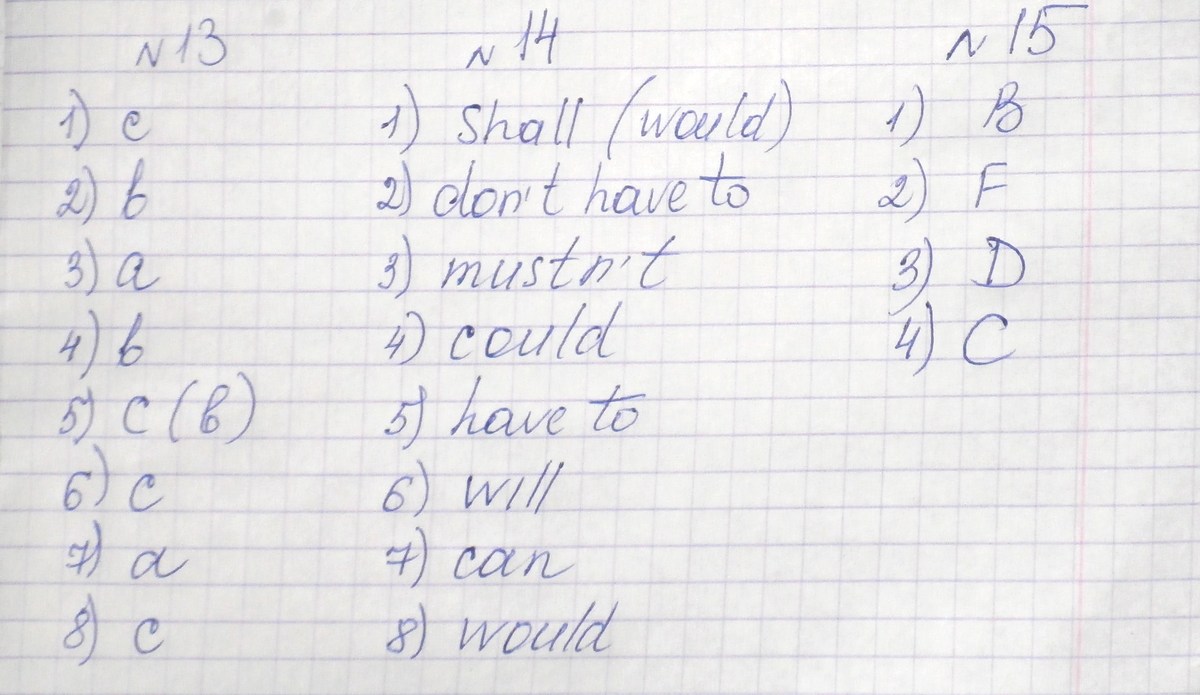 №13 №14 №15
1) c 1) Shall (would) 1) B
2) b 2) don't have to 2) F
3) a 3) mustn't 3) D
4) b 4) could 4) C
5) c (b) 5) have to
6) c 6) will
7) a 7) can
8) c 8) would